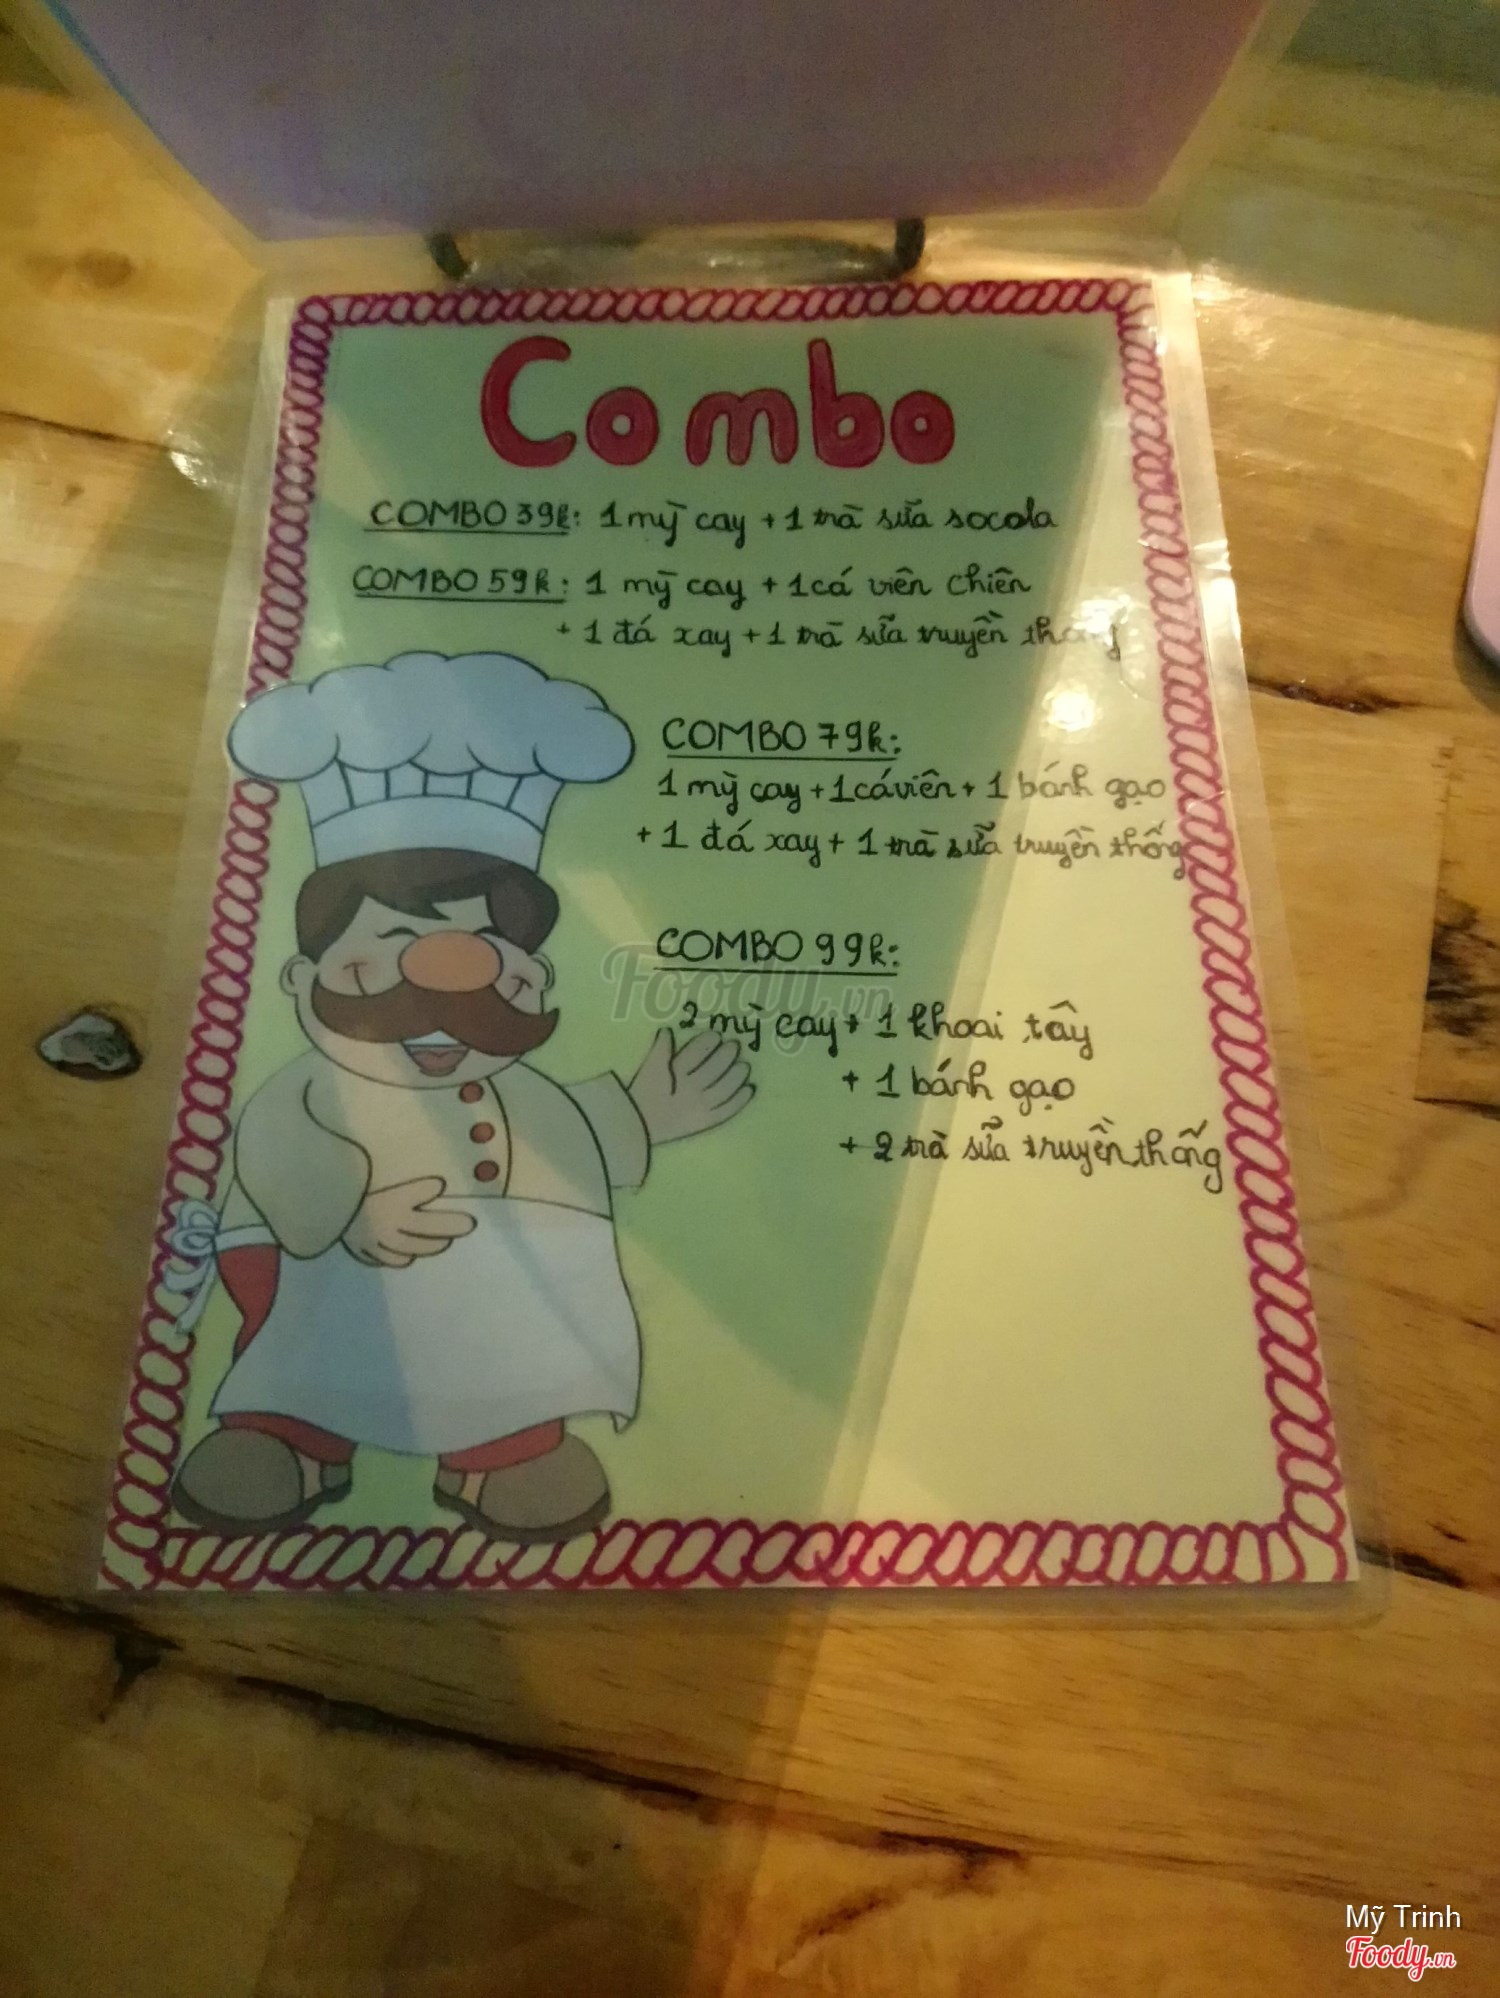 Combo
COMBO 39k: 1 mỳ cay + 1 trà sữa socola
COMBO 59k: 1 mỳ cay + 1 cá viên chiên
+ 1 đá xay + 1 trà sữa truyền thống
COMBO 79k:
1 mỳ cay + 1 cá viên + 1 bánh gạo
+ 1 đá xay + 1 trà sữa truyền thống
COMBO 99k:
Foody.vn
2 mỳ cay + 1 khoai tây
+ 1 bánh gạo
+ 2 trà sữa truyền thống
Mỹ Trinh
Foody.vn